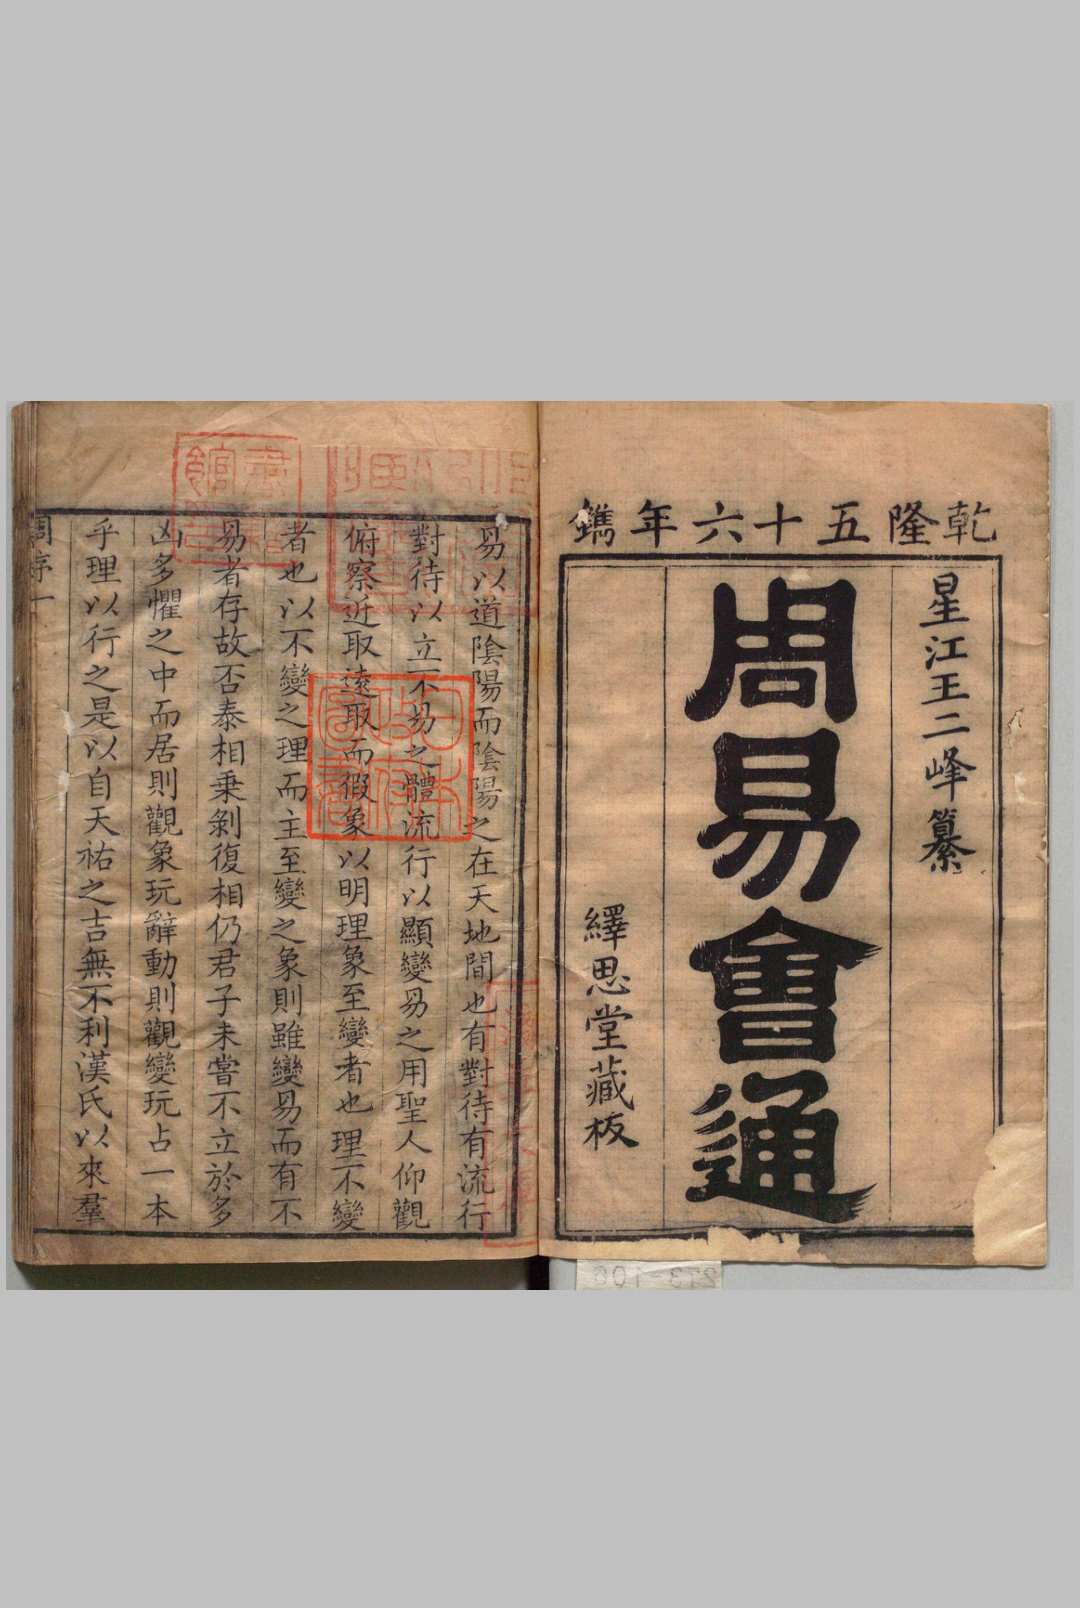 乾隆五十六年鐫
星江王二峰纂
周易會通
繹思堂藏板
易以道陰陽而陰陽之在天地間也有對待有流行
對待以立不易之體流行以顯變易之用聖人仰觀
俯察近取遠取而假象以明理象至變者也理不變
者也以不變之理而主至變之象則雖變易而有不
易者存故否泰相乗剝復相仍君子未嘗不立於多
凶多懼之中而居則觀象玩辭動則觀變玩占一本
乎理以行之是以自天祐之吉無不利漢氏以來羣
周序一
273-106